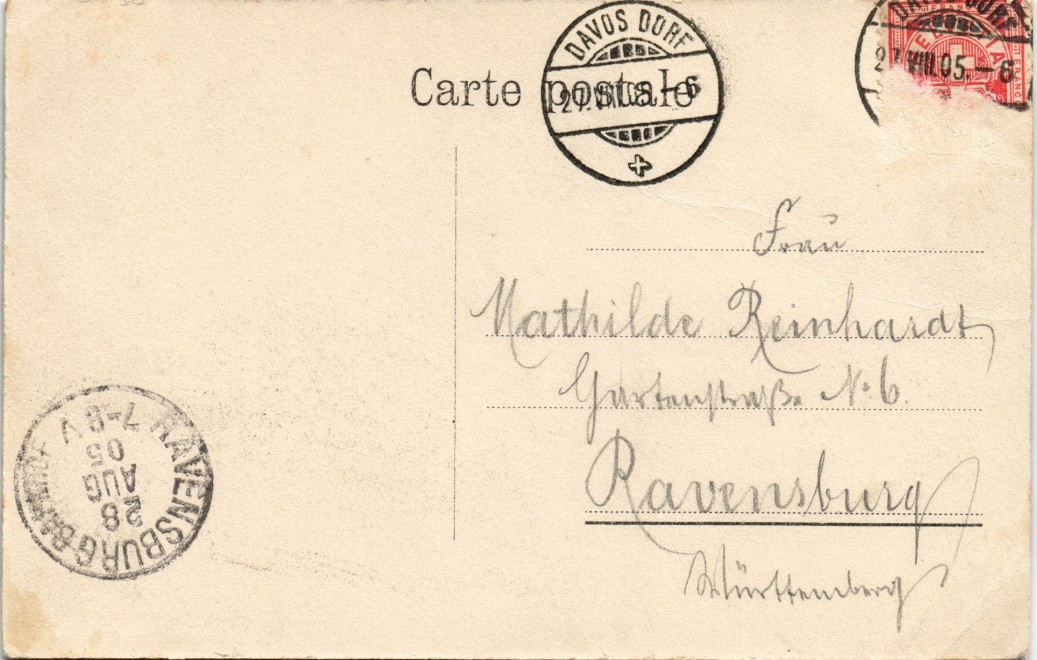 DAVOS DORF
27.VIII.05.-6
DAVOS DORF
27.VIII.05.-6
Carte postale
HELVETIA
FRANCO
Frau
Mathilde Reinhardt
Gartenstraße No 6.
Ravensburg
Württemberg
RAVENSBURG BAHNHOF
28
AUG
05
7-8 V